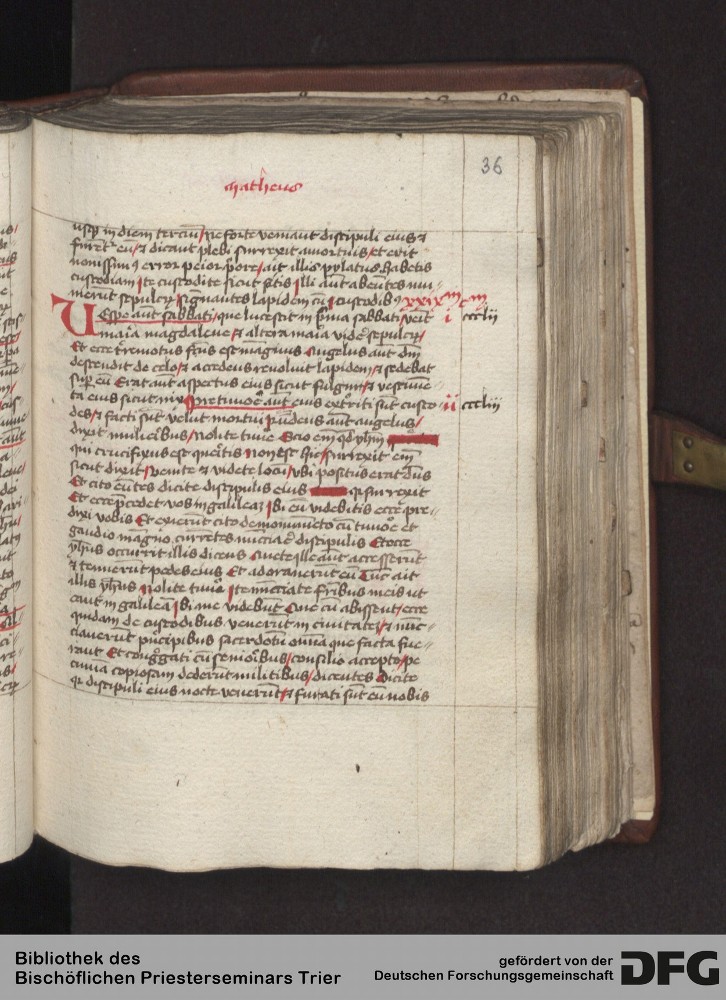 36
matheus
usq̃ in diem terciũ / ne forte veniant discipuli eius ⁊
furẽt᷑ eũ / ⁊ dicant plebi surrexit a mortuis / et erit
nouissim9 error peior p̃ore / ait illis pylatus habetis
custodiam Ite custodite sicut sc̃tis Illi aũt abeũtes mu-
nierũt sepulcrũ / signantes lapidem cũ custodib9 xxixm
Uespe aũt sabbati / que lucescit in p̃ma sabbati / veĩt i ccclii
maria magdalene / ⁊ altera maria videre sepulcrũ /
Et ecce tremotus fc̃us est magnus Angelus aũt dñi
descendit de celo / ⁊ accedens reuoluit lapidem / ⁊ sedebat
sup̃ eũ Erat aũt aspectus eius sicut fulgur / ⁊ vestime-
ta eius sicut nix Pre timore aũt eius exterriti sũt custo- ii cccliii
des / ⁊ facti sũt velut mortui r̃ndens aũt angelus /
dixit mulieribus / Nolite timere Scio em̃ qd̃ yhm
qui crucifixus est queritis Non est hic / surrexit em̃
sicut dixit / venite ⁊ videte locũ / vbi positus erat dñs
Et cito eũtes dicite discipulis eius q̃ surrexit
Et ecce p̃cedet vos in galileaz Ibi eũ videbitis ecce pre-
dixi vobis Et exierũt cito de monumẽto cũ timore et
gaudio magno currẽtes nũciare discipulis Et ecce
yhus occurrit illis dicens Auete Ille aũt accesserũt
⁊ tenuerũt pedes eius Et adorauerũt eũ Tũc ait
illis yhus Nolite timere Ite nũciate fratribus meis ut
eant in galileã Ibi me videbũt Que cũ abissent / ecce
quidam de custodibus venerũt in ciuitatẽ / ⁊ nũc-
ciauerũt principibus sacerdotũ omnia que facta fue-
rant Et congregati cũ senioribus / consilio accepto / pe
cuniã copiosam dederũt militibus / dicentes Dicite
q̃ discipuli eius nocte venerũt / ⁊ furati sũt eũ nobis
Bibliothek des
Bischöflichen Priesterseminars Trier
gefördert von der
Deutschen Forschungsgemeinschaft
DFG